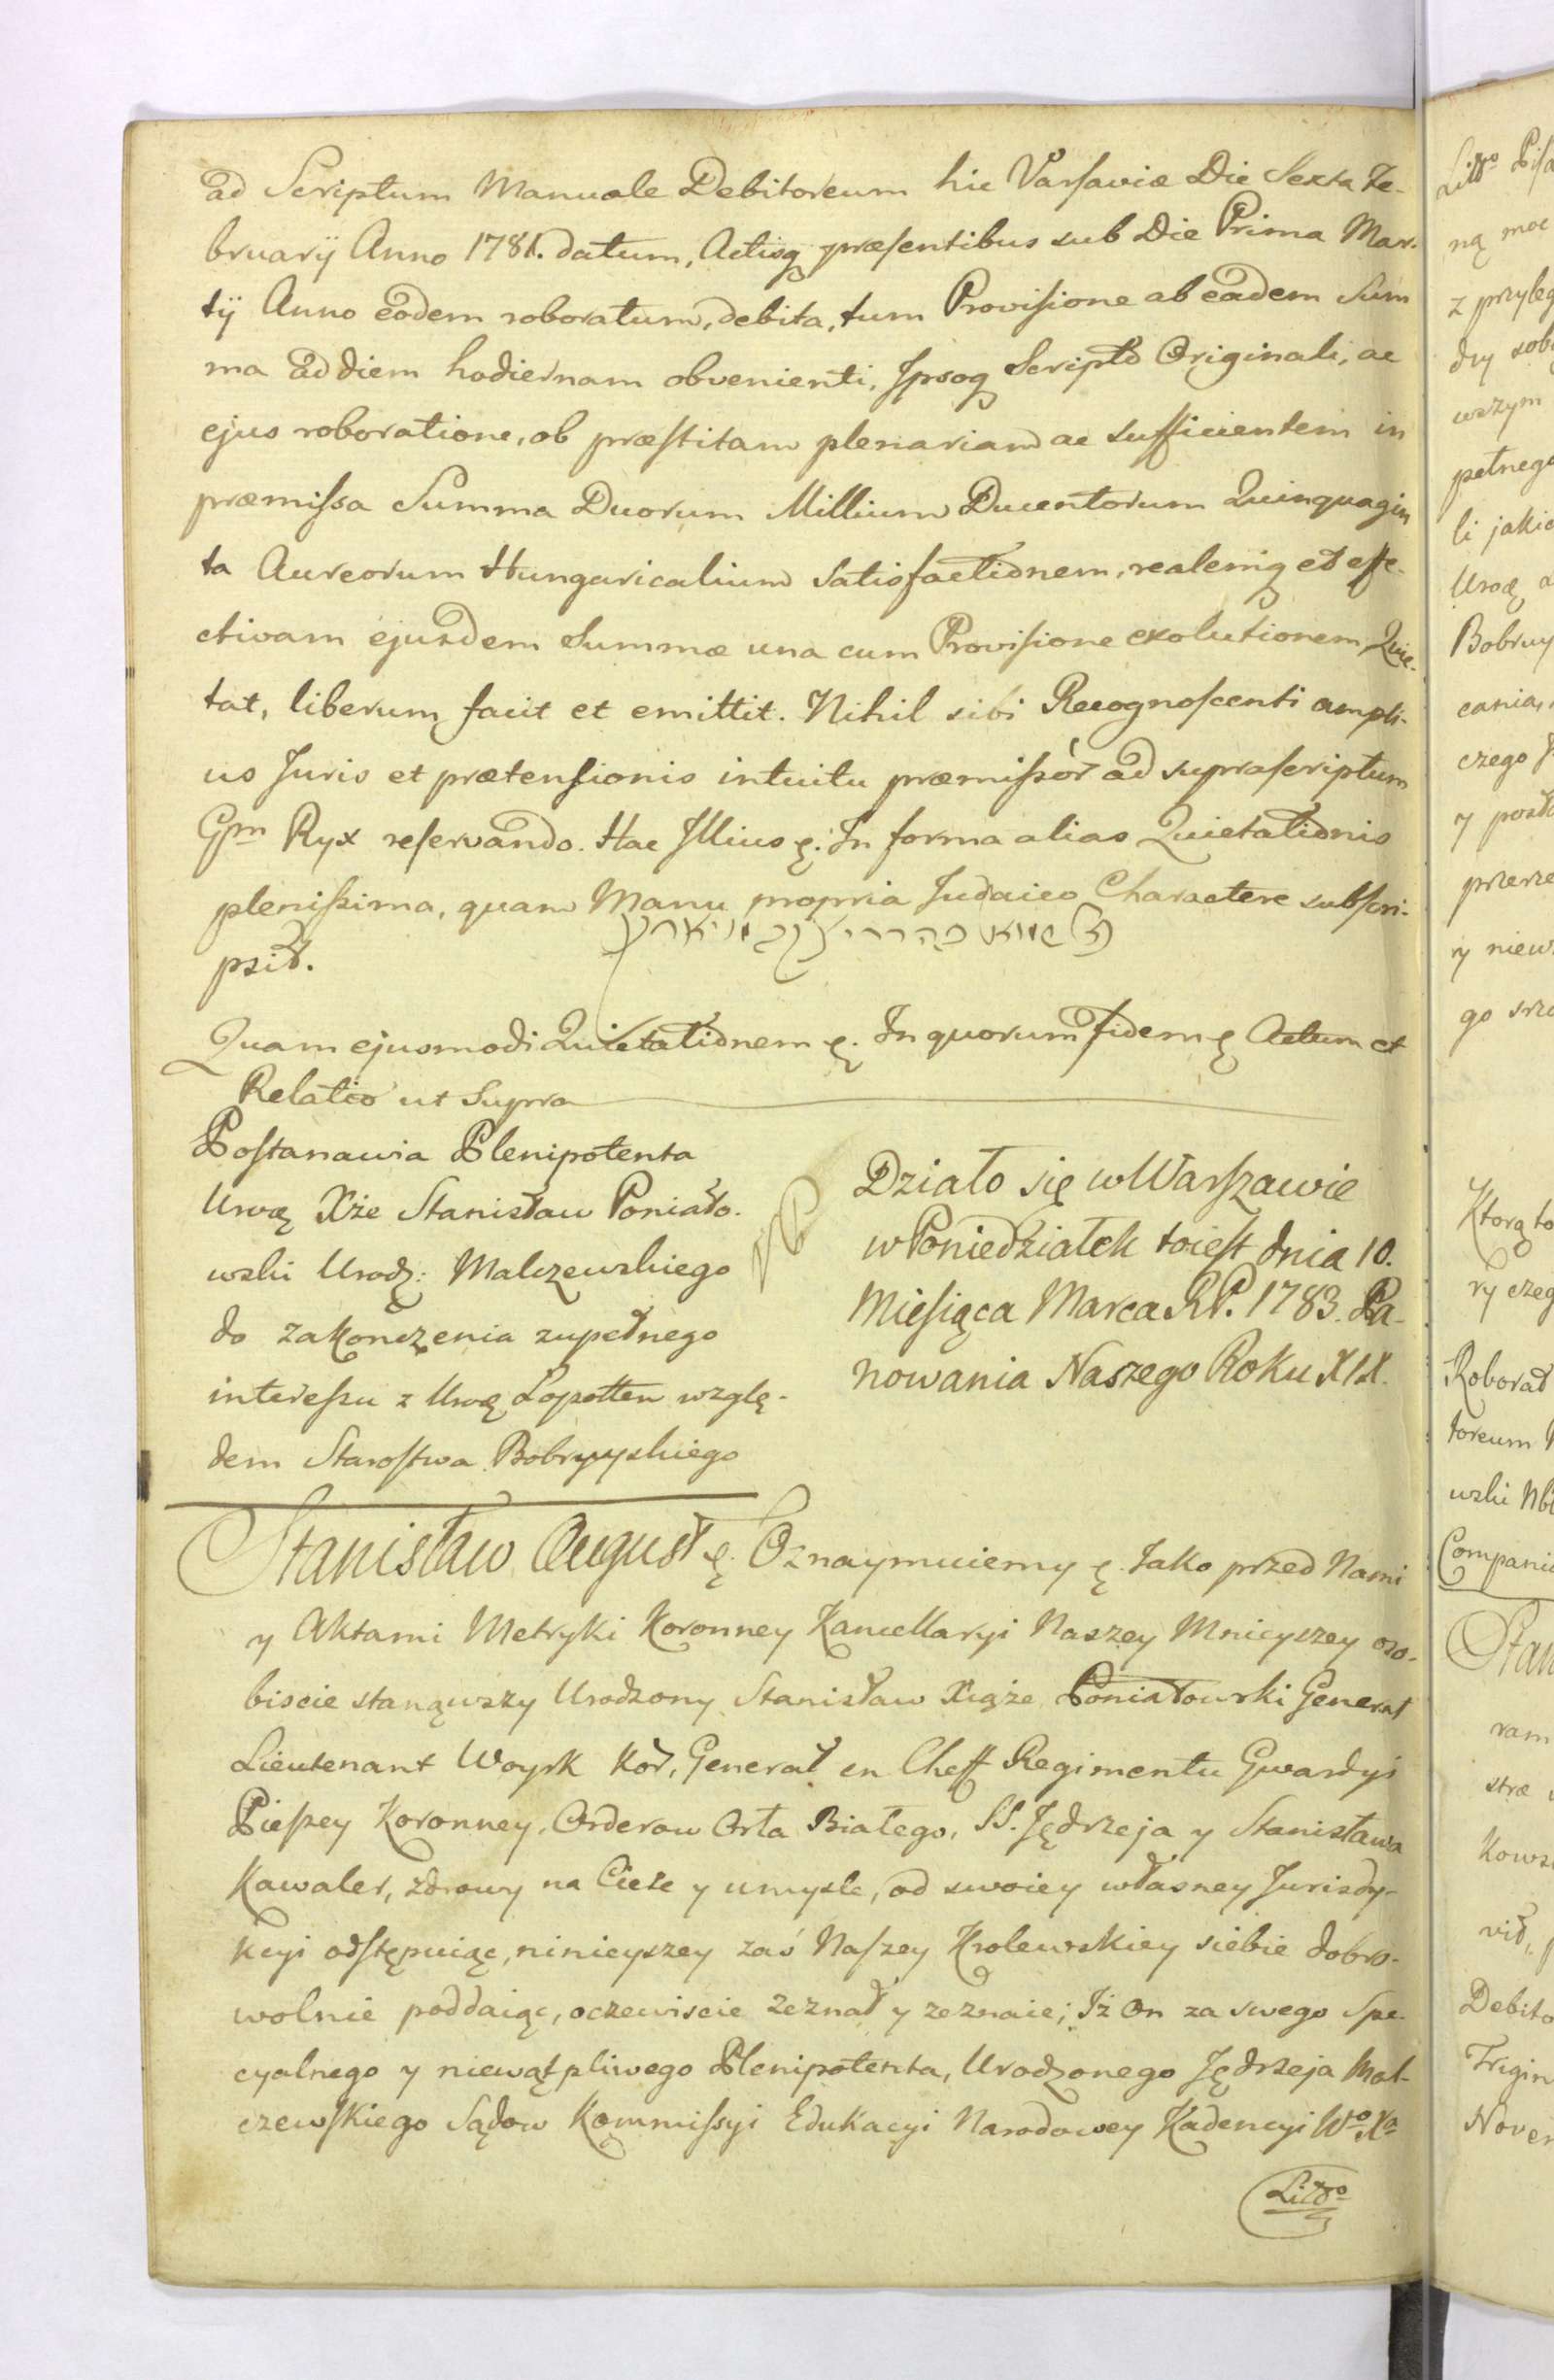 ad Scriptum Manuale Debitoreum hic Varsaviæ Die Sexta Fe-
bruarij Anno 1781. datum, Actisq præsentibus sub Die Prima Mar-
tij Anno eodem roboratum, debita, tum Provisione ab eadem Sum
ma ad diem hodiernam obvenienti, Ipsoq Scripto Originali, ac
ejus roboratione, ob præstitam plenariam ac sufficientem in
præmissa Summa Duorum Millium Ducentorum Quinquagin
ta Aureorum Hungaricalium Satisfactionem, realemq et effe-
ctivam ejusdem Summæ una cum Provisione exolutionem, Quie-
tat, liberum facit et emittit. Nihil sibi Recognoscenti ampli-
us Juris et prætensionis intuitu præmissor ad suprascriptum
Gm Ryx reservando. Hac Illius ę: In forma alias Quietationis
plenissima, quam Manu propria Judaico Charactere subscri-
psit.
Quam ejusmodi Quietationem ę. In quorum fidem ę Actum et
Relatio ut Supra
Postanawia Plenipotenta
Urodz Xże Stanisław Poniato-
wski Urodz: Malczewskiego
do zakonczenia zupełnego
interessu z Urodz Łopotten wzglę-
dem Starostwa Bobruyskiego
Działo się w Warszawie
w Poniedziałek toiest dnia 10.
Miesiąca Marca RP. 1783. Pa-
nowania Naszego Roku XIX.
Stanisław August ę. Oznaymuiemy ę. Jako przed Nami
y Aktami Metryki Koronney Kancellaryi Naszey Mnieyszey oso-
biscie stanąwszy Urodzony Stanisław Xiąże Poniatowski Generał
Lieutenant Woysk Kor, Generał en Cheff Regimentu Gwardyi
Pieszey Koronney, Orderow Orła Białego, SS. Jędrzeja y Stanisława
Kawaler, zdrowy na Ciele y umysle, od swoiey własney Jurisdy-
kcyi odstępuiąc, ninieyszey zaś Naszey Krolewskiey siebie dobro-
wolnie poddaiąc, oczewiscie zeznał y zeznaie; Iż On za swego Spe-
cyalnego y niewątpliwego Plenipotenta, Urodzonego Jędrzeja Mal-
czewskiego Sądow Kommissyi Edukacyi Narodowey Kadencyi Wo Xa
Litto